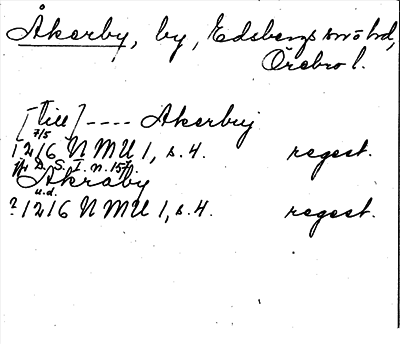 Åkerby, by, Edsbergs sn o hd,
Örebro l.
[till] ---- Akerby
7/5
1216 N M U 1, s. 4. regest.
jfr D. S. I. n. 157.
Akraby
u.d.
? 1216 N M U 1, s. 4. regest.